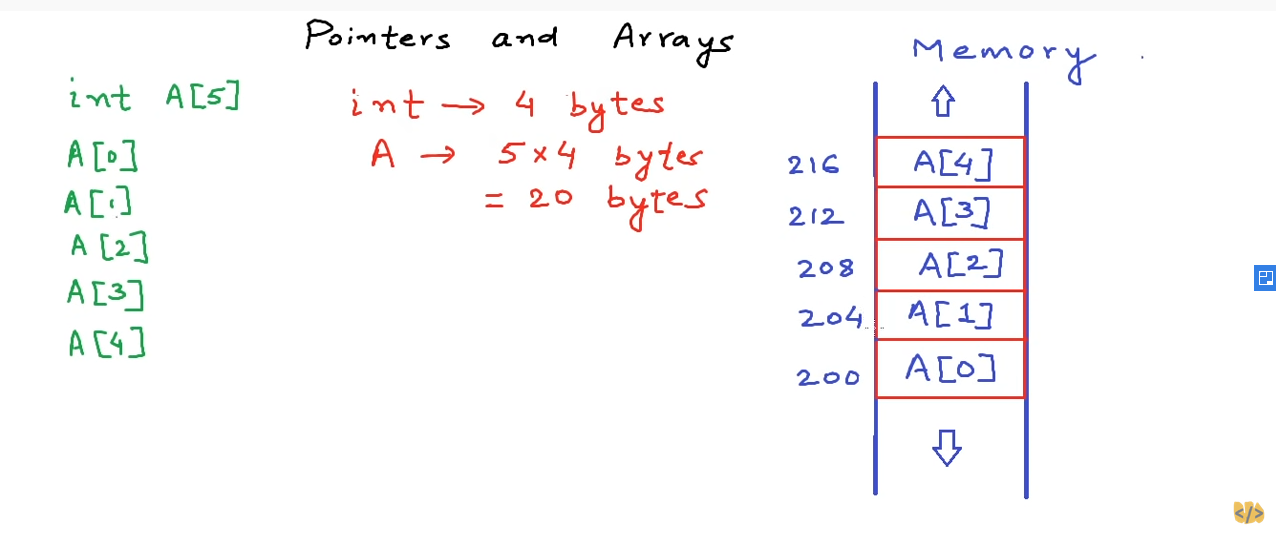 Pointers and Arrays
int A[5]
A[0]
A[1]
A[2]
A[3]
A[4]
int → 4 bytes
A → 5×4 bytes
= 20 bytes
Memory
216 A[4]
212 A[3]
208 A[2]
204 A[1]
200 A[0]
</>